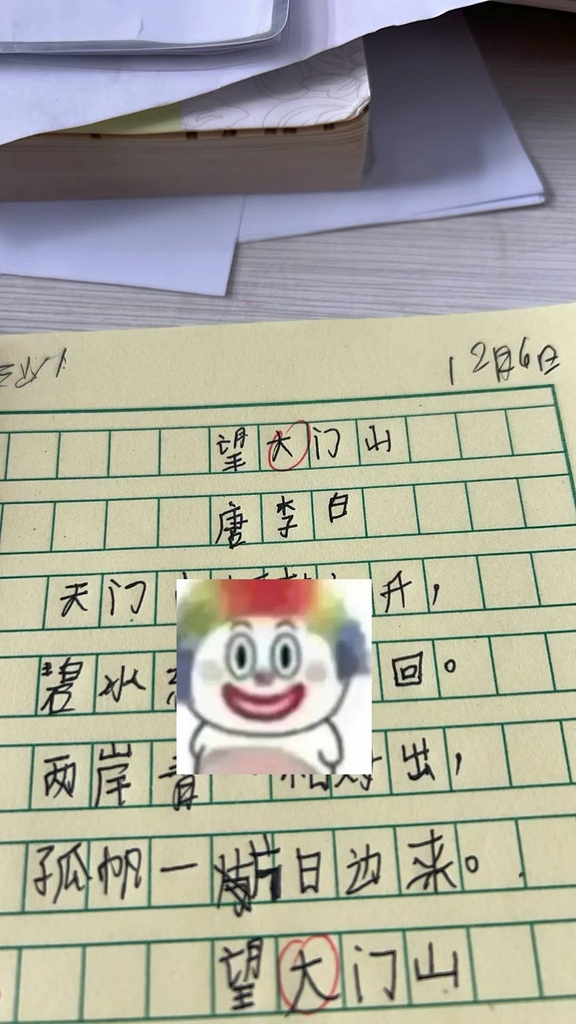 12月6日
望大门山
唐李白
天门 开，
碧水 回。
两岸青 相对出，
孤帆一片日边来。
望大门山